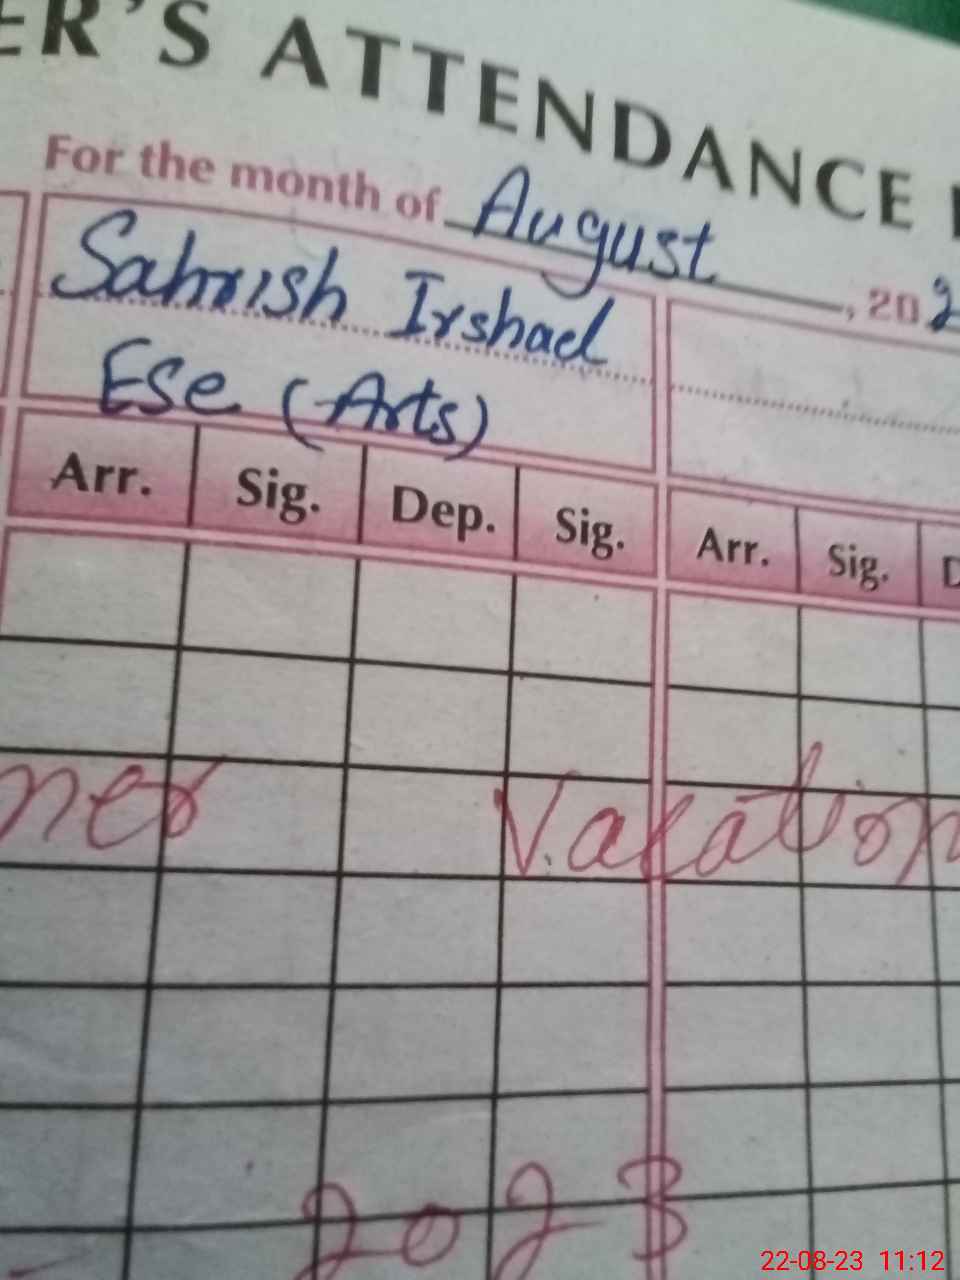 ER'S ATTENDANCE
For the month of August, 202
Sahrish Irshad
Ese (Arts)
Arr. Sig. Dep. Sig. Arr. Sig. D
mer Vacation
2023
22-08-23 11:12